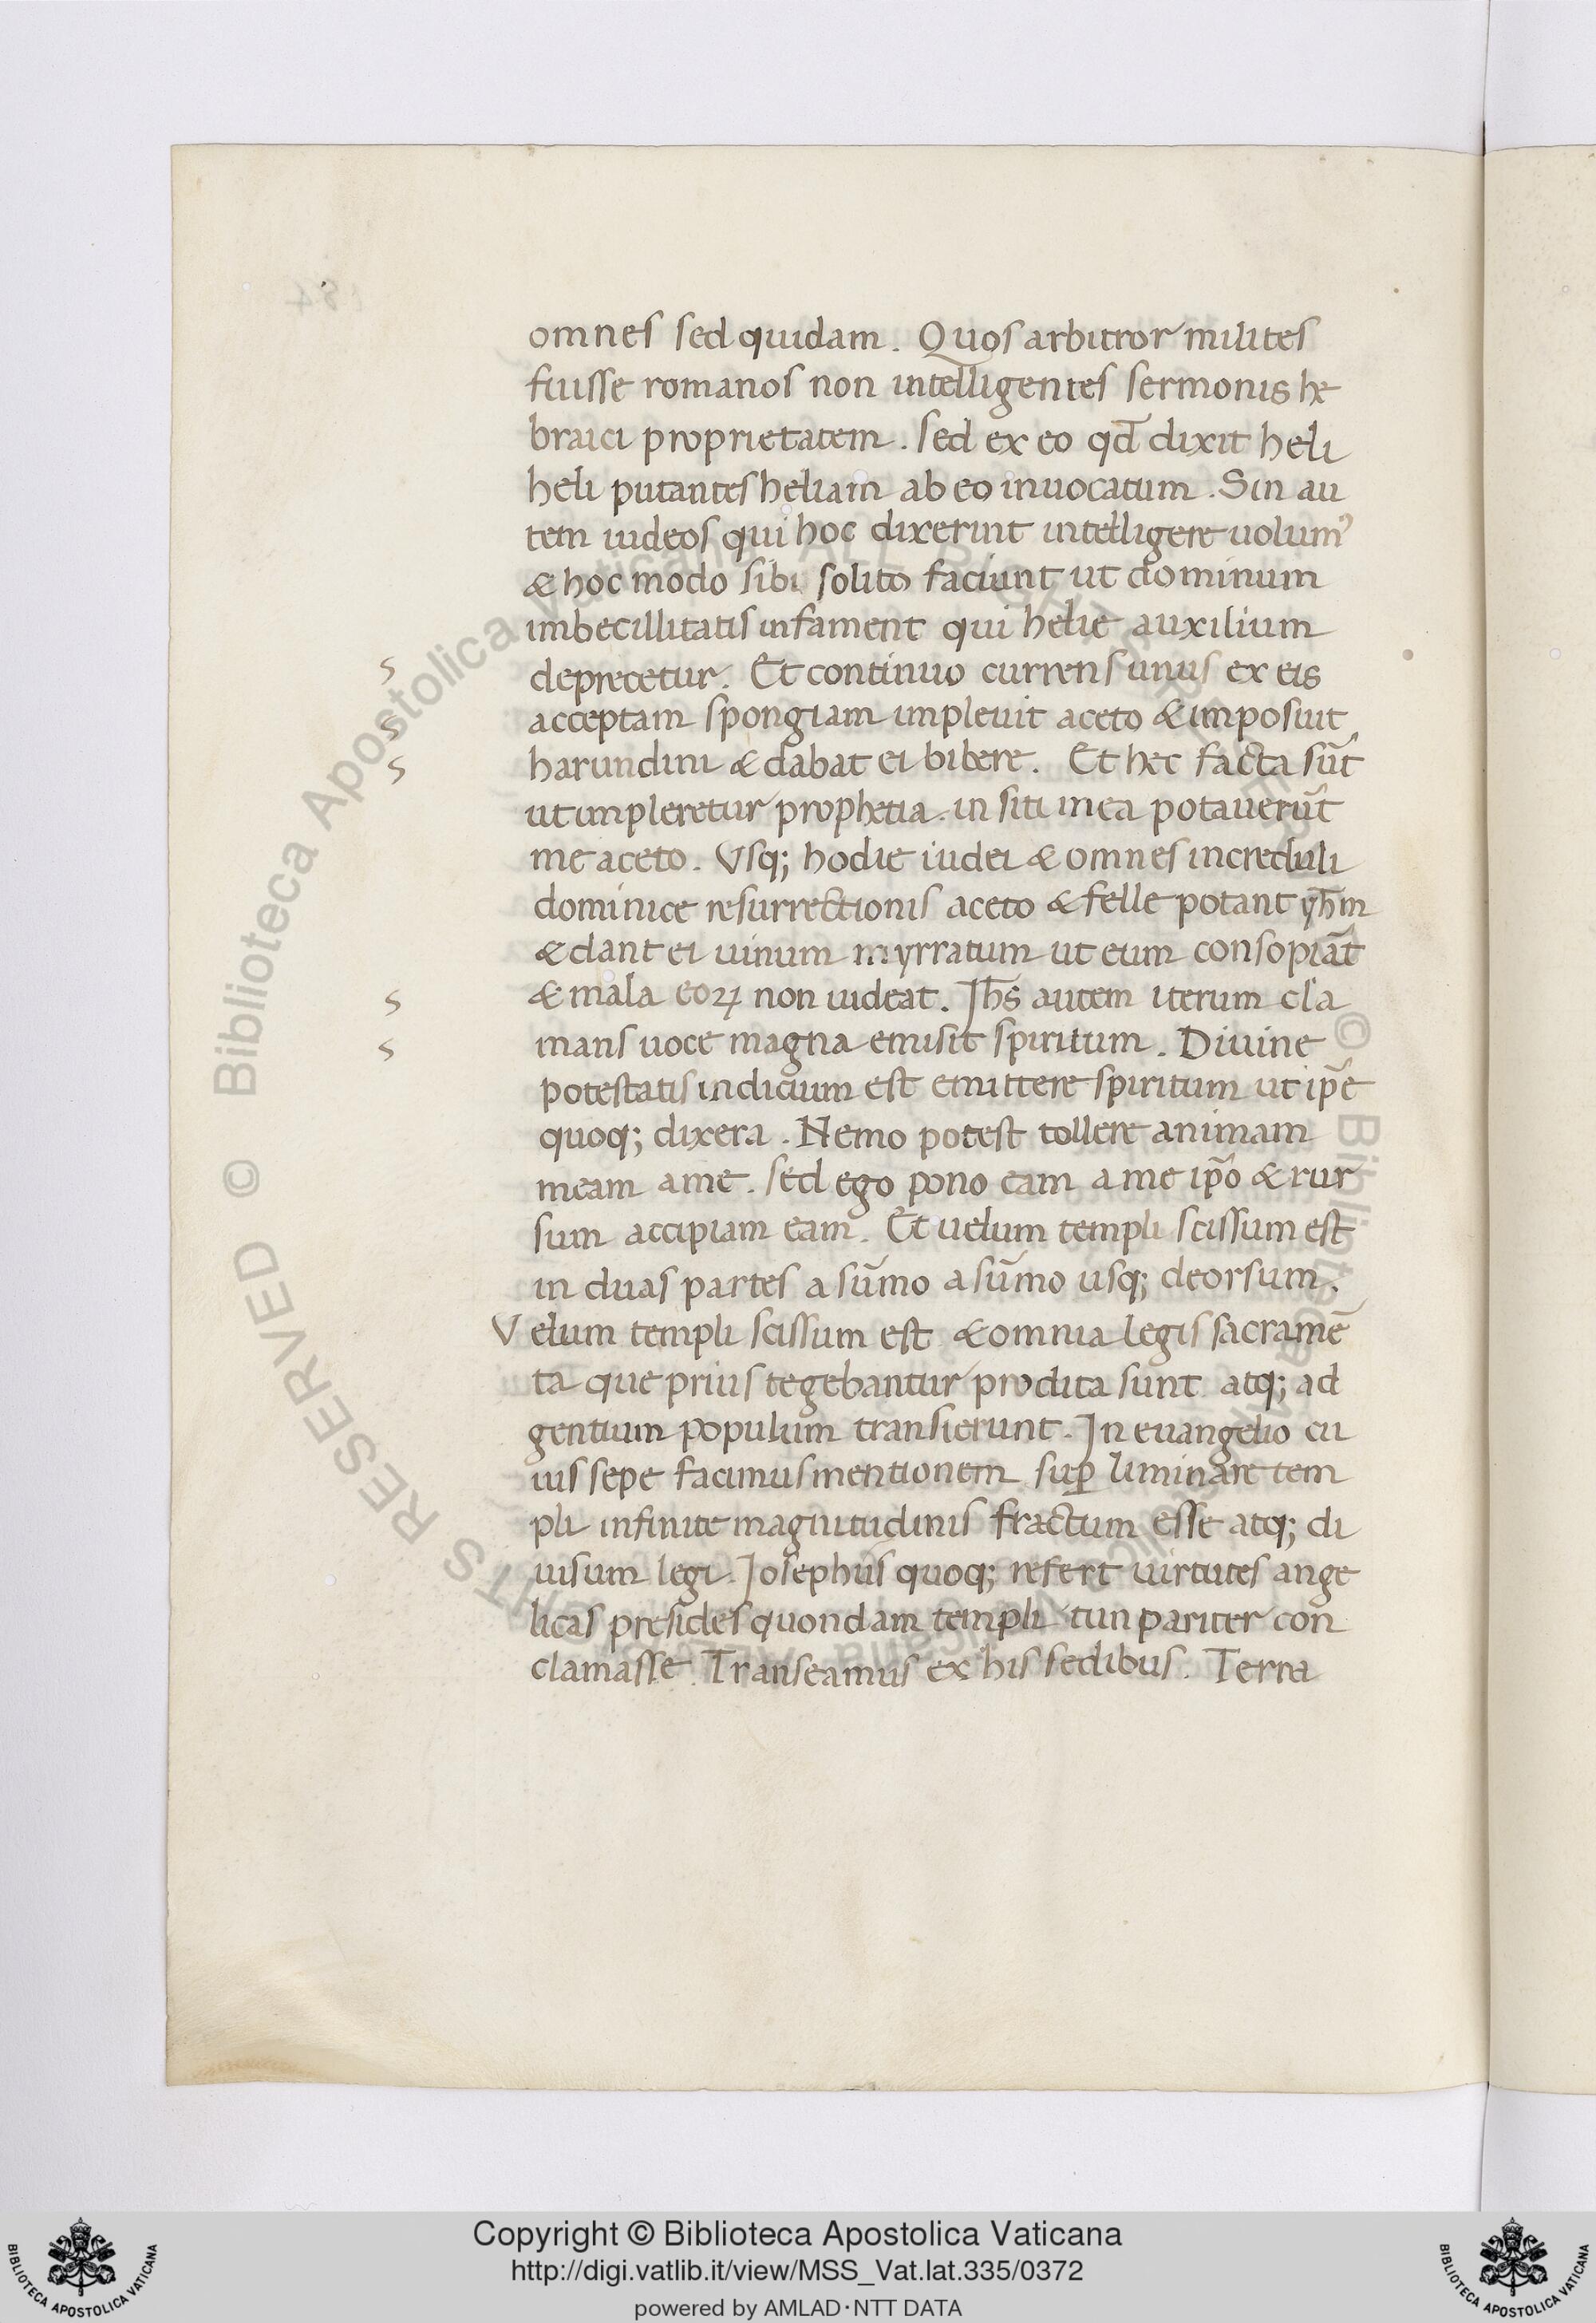 omnes sed quidam. Quos arbitror milites
fuisse romanos non intelligentes sermonis he
braici proprietatem. sed ex eo qd̄ dixit heli
heli putantes heliam ab eo inuocatum. Sin au
tem iudeos qui hoc dixerint intelligere uolumꝰ
& hoc modo sibi solito faciunt ut dominum
imbecillitatis infament qui helie auxilium
deprecetur. Et continuo currens unus ex eis
acceptam spongiam impleuit aceto & imposuit
harundini & dabat ei bibere. Et hec facta sūt
ut impleretur prophetia. in siti mea potauerūt
me aceto. Vsq; hodie iudei & omnes increduli
dominice resurrectionis aceto & felle potant yh̄m
& dant ei uinum myrratum ut eum consopiāt
& mala eoꝝ non uideat. Jh̄s autem iterum cla
mans uoce magna emisit spiritum. Diuine
potestatis indicium est emittere spiritum ut ip̄e
quoq; dixera. Nemo potest tollere animam
meam a me. sed ego pono eam a me ip̄o & rur
sum accipiam eam. Et uelum templi scissum est
in duas partes a sūmo a sūmo usq; deorsum.
Velum templi scissum est & omnia legis sacramē
ta que prius tegebantur prodita sunt atq; ad
gentium populum transierunt. In euangelio cu
ius sepe facimus mentionem suꝑ liminare tem
pli infinite magnitudinis fractum esse atq; di
uisum legi. Josephus quoq; refert uirtutes ange
licas presides quondam templi tun pariter con
clamasse. Transeamus ex his sedibus. Terra
s
s
s
s
s
© Biblioteca Apostolica Vaticana
ALL RIGHTS RESERVED
Copyright © Biblioteca Apostolica Vaticana
http://digi.vatlib.it/view/MSS_Vat.lat.335/0372
powered by AMLAD·NTT DATA
BIBLIOTECA APOSTOLICA VATICANA
BIBLIOTECA APOSTOLICA VATICANA